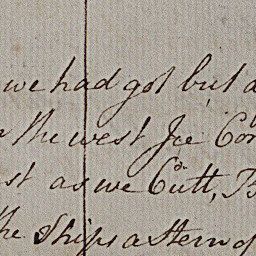 we had got but a
the west Ice Con
st as we Cutt, B
the Ships astern of